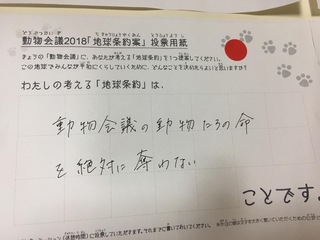 動物会議2018「地球条約案」投票用紙
きょうの「動物会議」に、あなたが考える「地球条約」を1つ提案してください。
この地球でみんなが平和にくらしていくために、どんなことを決めたらよいと思いますか?
わたしの考える「地球条約」は、
動物会議の動物たちの命
を絶対に奪わない
ですとこ